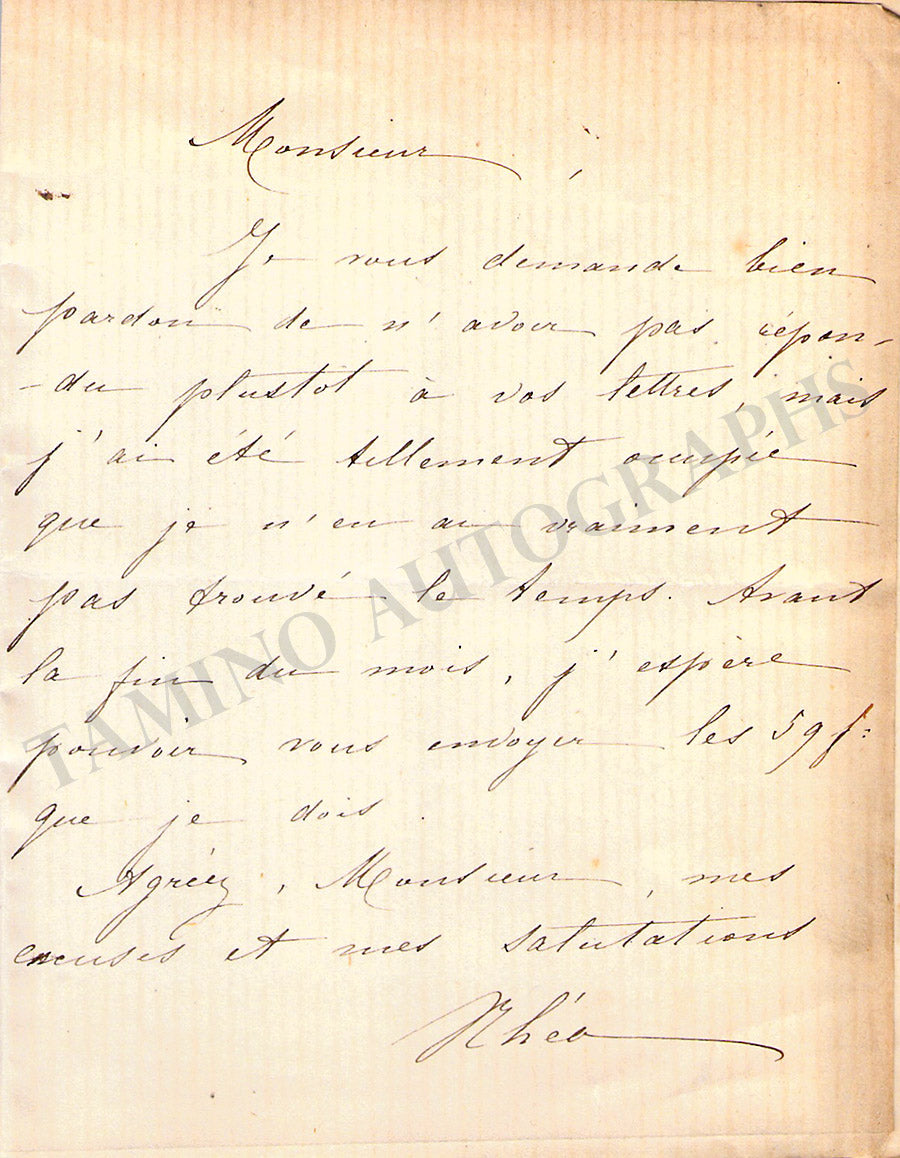 Monsieur,
Je vous demande bien
pardon de n'avoir pas répon-
-du plustôt à vos lettres, mais
j'ai été tellement occupée
que je n'en ai vraiment
pas trouvé le temps. Avant
la fin du mois, j'espère
pouvoir vous envoyer les 59 f:
que je dois.
Agréez, Monsieur, mes
excuses et mes salutations
Rhéa
TAMINO AUTOGRAPHS